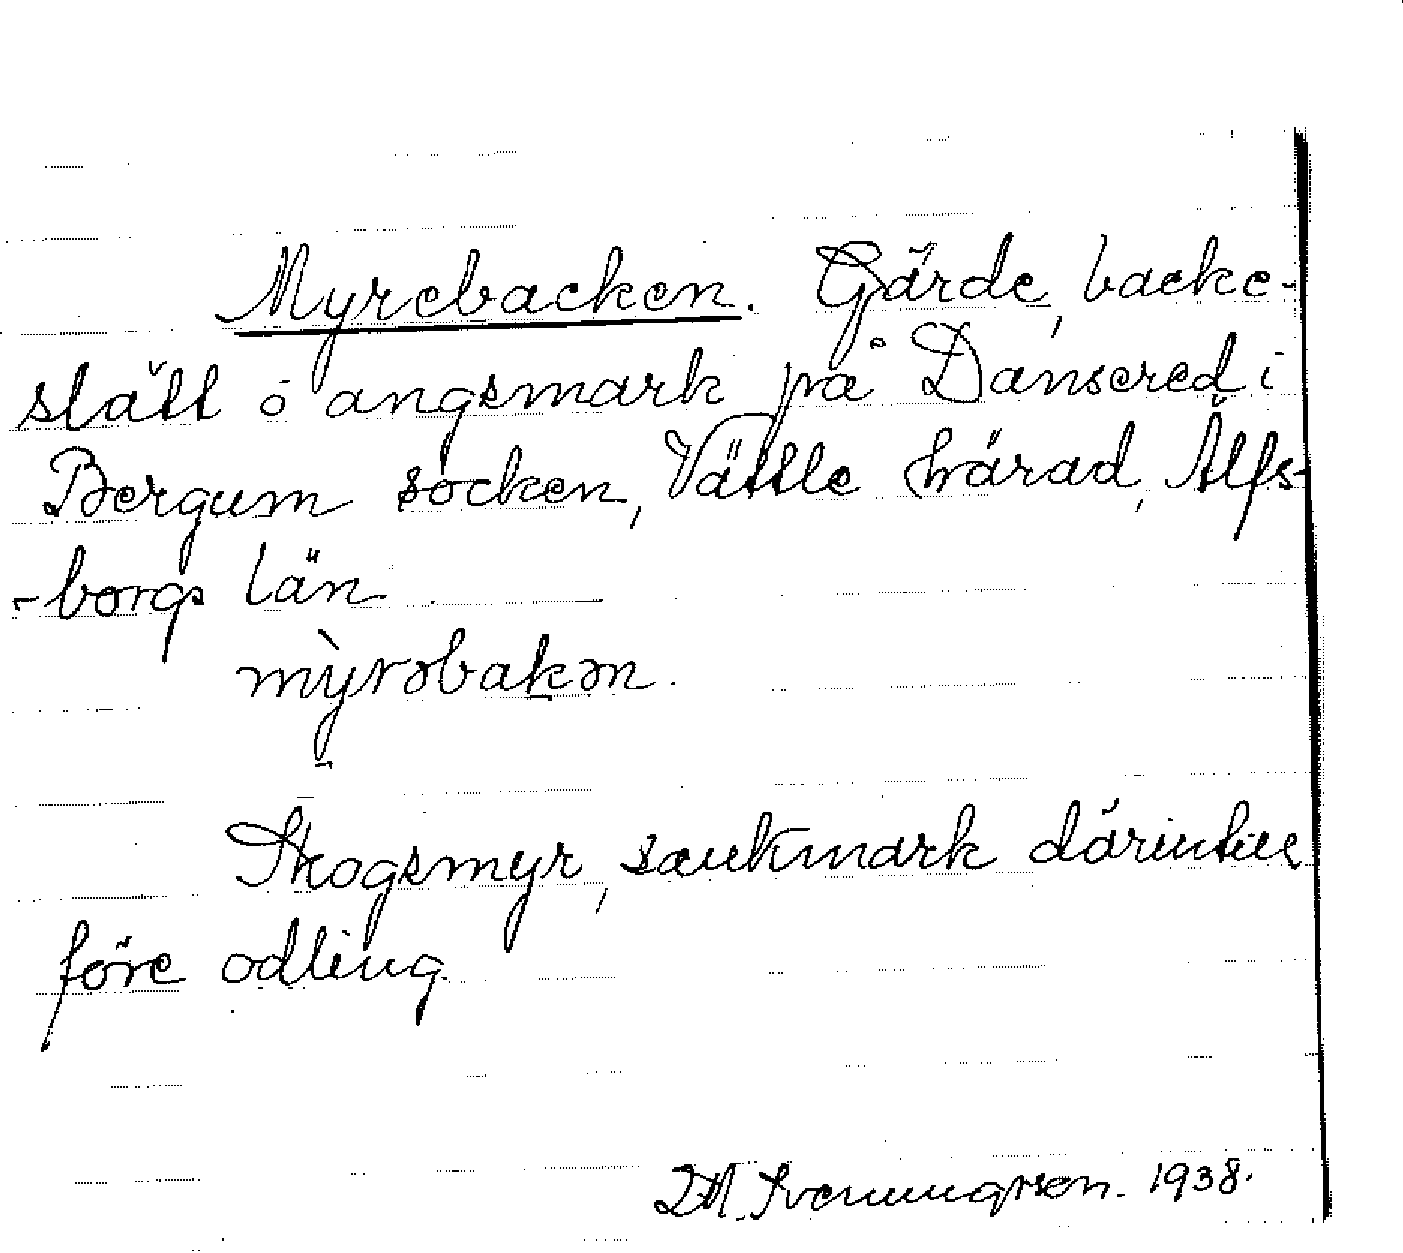 Myrebacken. Gärde, backe-
slätt o ängsmark på Dansered i
Bergum socken, Vättle härad, Älfs-
-borgs län
mỳrəbakən.
Skogsmyr, sankmark därintill
före odling
Sveningsson. 1938.